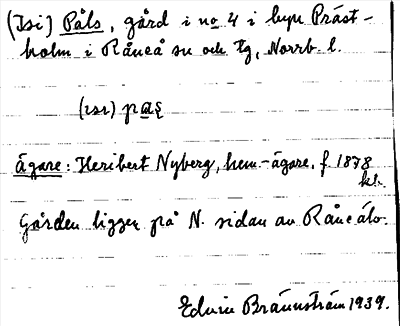 (Isi) Påls, gård i no 4 i byn Präst-
holm i Råneå sn och tg, Norrb. l.
(ısı) pa̲ς
Ägare: Heribert Nyberg, hem.-ägare, f. 1878
kl.
Gården ligger på N. sidan av Råneälv.
Edvin Brännström 1939.